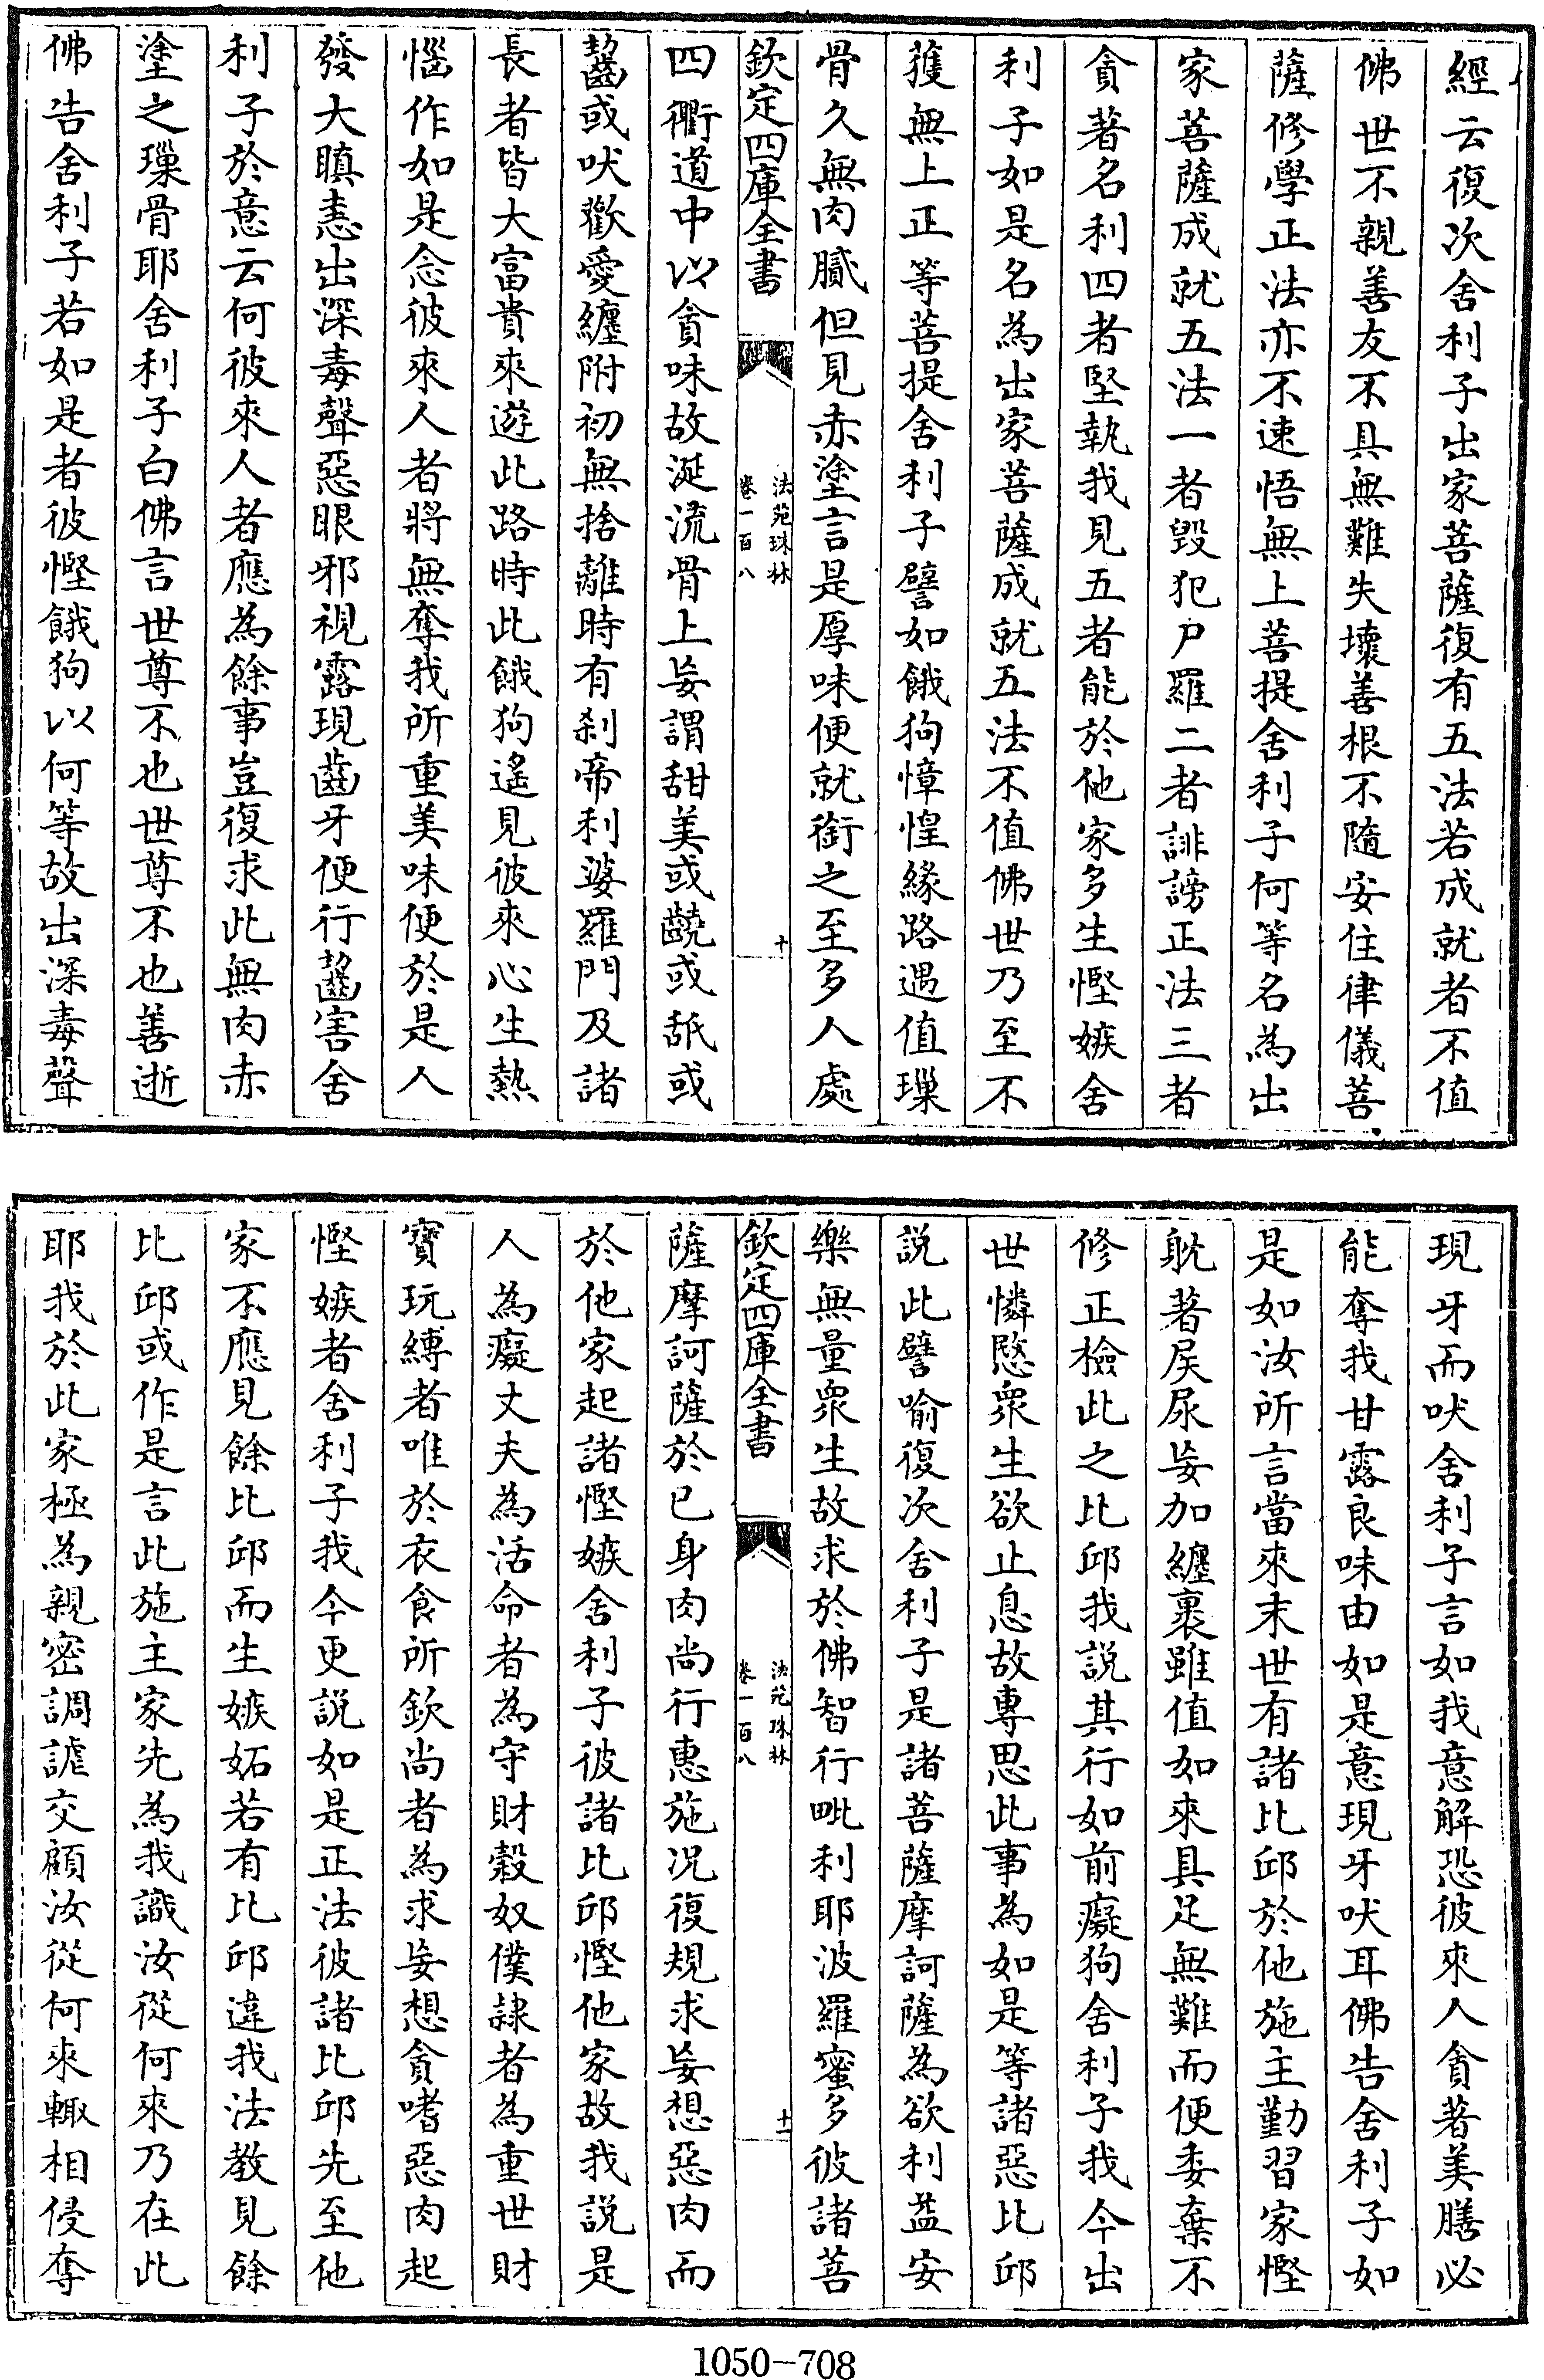 經云復次舍利子出家菩薩復有五法若成就者不值
佛世不親善友不具無難失壞善根不隨安住律儀菩
薩修學正法亦不速悟無上菩提舍利子何等名為出
家菩薩成就五法一者毀犯尸羅二者誹謗正法三者
貪著名利四者堅執我見五者能於他家多生慳嫉舍
利子如是名為出家菩薩成就五法不值佛世乃至不
獲無上正等菩提舍利子譬如餓狗慞惶緣路遇值璅
骨久無肉膩但見赤塗言是厚味便就銜之至多人處
欽定四庫全書
法苑珠林
卷一百八
十
四衢道中以貪味故涎流骨上妄謂甜美或齩或舐或
齧或吠歡愛纏附初無捨離時有剎帝利婆羅門及諸
長者皆大富貴來遊此路時此餓狗遙見彼來心生熱
惱作如是念彼來人者將無奪我所重美味便於是人
發大瞋恚出深毒聲惡眼邪視露現齒牙便行齧害舍
利子於意云何彼來人者應為餘事豈復求此無肉赤
塗之璅骨耶舍利子白佛言世尊不也世尊不也善逝
佛告舍利子若如是者彼慳餓狗以何等故出深毒聲
現牙而吠舍利子言如我意解恐彼來人貪著美膳必
能奪我甘露良味由如是意現牙吠耳佛告舍利子如
是如汝所言當來末世有諸比邱於他施主勤習家慳
躭著屎尿妄加纏裹雖值如來具足無難而便委棄不
修正檢此之比邱我說其行如前癡狗舍利子我今出
世憐愍衆生欲止息故專思此事為如是等諸惡比邱
說此譬喻復次舍利子是諸菩薩摩訶薩為欲利益安
樂無量衆生故求於佛智行毗利耶波羅蜜多彼諸菩
欽定四庫全書
法苑珠林
卷一百八
十一
薩摩訶薩於已身肉尚行惠施况復規求妄想惡肉而
於他家起諸慳嫉舍利子彼諸比邱慳他家故我說是
人為癡丈夫為活命者為守財穀奴僕隷者為重世財
寶玩縛者唯於衣食所欽尚者為求妄想貪嗜惡肉起
慳嫉者舍利子我今更說如是正法彼諸比邱先至他
家不應見餘比邱而生嫉妬若有比邱違我法教見餘
比邱或作是言此施主家先為我識汝從何來乃在此
耶我於此家極為親密調謔交顧汝從何來輙相侵奪
1050-708